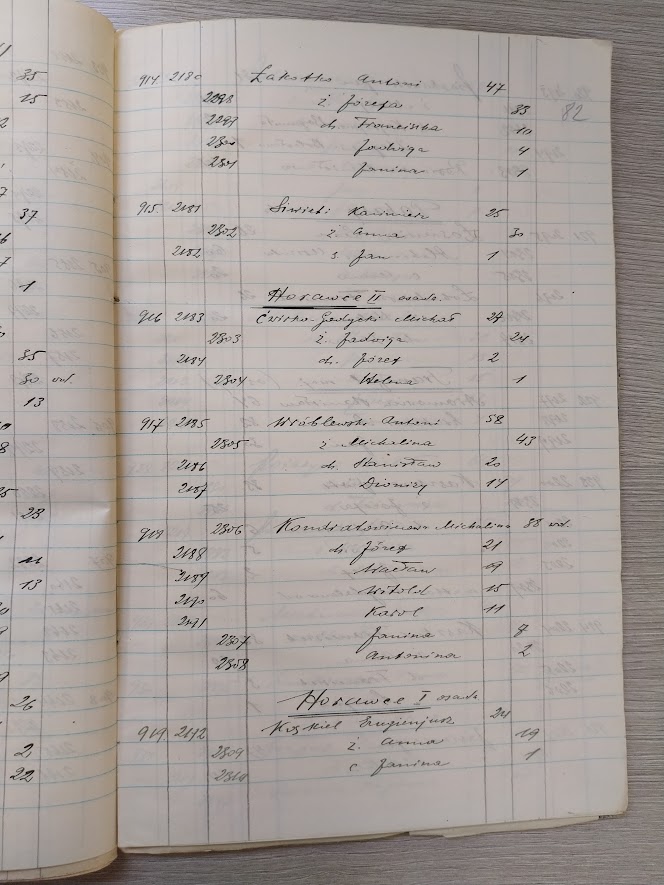 82
914 2180 Łakotko Antoni 47
2298 ż. Józefa 33
2299 dz. Franciszka 10
2300 Jadwiga 4
2301 Janina 1
915. 2181 Siwicki Kazimierz 25
2302 ż. Anna 30
2182 s. Jan 1
Horawce II osada.
916 2183 Ćwirko-Godycki Michał 27
2303 ż. Jadwiga 24
2184 dz. Józef 2
2304 Helena 1
917 2185 Wróblewski Antoni 58
2305 ż. Michalina 43
2186 dz. Stanisław 20
2187 Dionizy 14
918 2306 Kondratowiczowa Michalina 38 wd.
2188 dz. Józef 21
2189 Wacław 19
2190 Witold 15
2191 Karol 11
2307 Janina 7
2308 Antonina 2
Horawce I osada
919 2192 Eugenjusz 24
2309 ż. Anna 19
2310 c. Janina 1
35
15
37
1
35
30 wd.
13
23
11
13
26
2
22